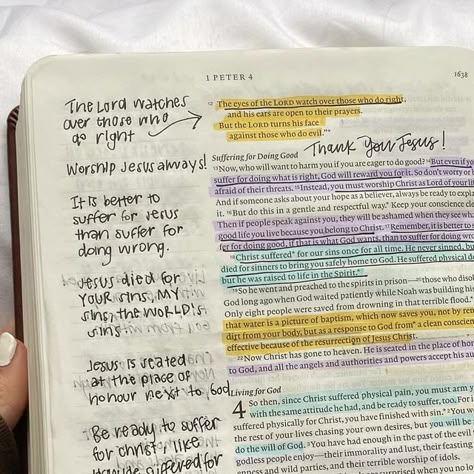 1 PETER 4
1638
The Lord watches
over those who
do right
Worship Jesus always!
It is better to
suffer for Jesus
than suffer for
doing wrong.
Jesus died for
YOUR sins, MY
sins, the WORLD'S
sins
Jesus is seated
at the place of
honour next to God
Be ready to suffer
for Christ, like
suffered for
12 The eyes of the LORD watch over those who do right,
and his ears are open to their prayers.
But the LORD turns his face
against those who do evil."
Thank you Jesus!
Suffering for Doing Good
13 Now, who will want to harm you if you are eager to do good? 14 But even if
suffer for doing what is right, God will reward you for it. So don't worry or b
afraid of their threats. 15 Instead, you must worship Christ as Lord of your l
And if someone asks about your hope as a believer, always be ready to expla
it. 16 But do this in a gentle and respectful way. Keep your conscience cle
Then if people speak against you, they will be ashamed when they see wha
good life you live because you belong to Christ. Remember, it is better to
for doing good, if that is what God wants, than to suffer for doing wron
Christ suffered for our sins once for all time. He never sinned, bu
died for sinners to bring you safely home to God. He suffered physical de
but he was raised to life in the Spirit.
19 So he went and preached to the spirits in prison— 20 those who diso
God long ago when God waited patiently while Noah was building hi
Only eight people were saved from drowning in that terrible flood.
that water is a picture of baptism, which now saves you, not by re
dirt from your body, but as a response to God from a clean consc
effective because of the resurrection of Jesus Christ.
22 Now Christ has gone to heaven. He is seated in the place of hon
to God, and all the angels and authorities and powers accept his a
Living for God
4 So then, since Christ suffered physical pain, you must arm y
with the same attitude he had, and be ready to suffer, too. For
suffered physically for Christ, you have finished with sin. 2 You w
the rest of your lives chasing your own desires, but you will be
do the will of God. 3 You have had enough in the past of the evil
godless people enjoy—their immorality and lust, their feasting
ness and wild parties, and their terrible worship of idols.